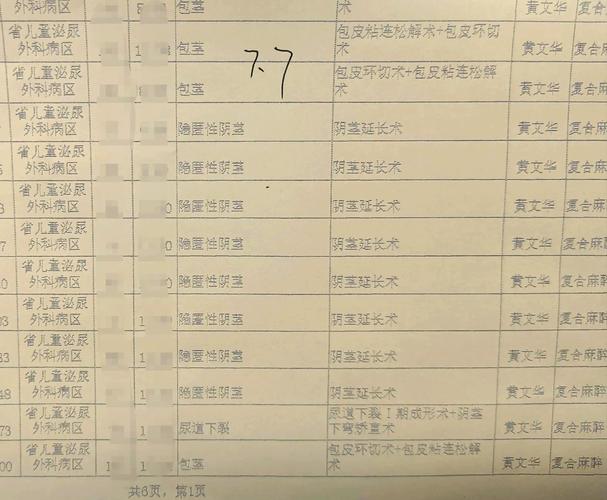 外科病区 包茎 术 黄文华 复合
省儿童泌尿 包皮粘连松解术+包皮环切
外科病区 1 包茎 术 黄文华 复合麻
7.7
省儿童泌尿 包皮环切术+包皮粘连松解
外科病区 包茎 术 黄文华 复合麻
省儿童泌尿
外科病区 隐匿性阴茎 阴茎延长术 黄文华 复合麻
省儿童泌尿
外科病区 隐匿性阴茎 阴茎延长术 黄文华 复合麻
省儿童泌尿
3 外科病区 0 隐匿性阴茎 阴茎延长术 黄文华 复合麻
省儿童泌尿
7 外科病区 0 隐匿性阴茎 阴茎延长术 黄文华 复合麻
省儿童泌尿
0 外科病区 0 隐匿性阴茎 阴茎延长术 黄文华 复合麻醉
省儿童泌尿
03 外科病区 1 隐匿性阴茎 阴茎延长术 黄文华 复合麻醉
省儿童泌尿
33 外科病区 1 隐匿性阴茎 阴茎延长术 黄文华 复合麻醉
省儿童泌尿
48 外科病区 1 隐匿性阴茎 阴茎延长术 黄文华 复合麻醉
省儿童泌尿 尿道下裂Ⅰ期成形术+阴茎
73 外科病区 1 尿道下裂 下弯矫直术 黄文华 复合麻醉
省儿童泌尿 包皮环切术+包皮粘连松解
00 外科病区 1 1 包茎 术 黄文华 复合麻醉
共6页，第1页